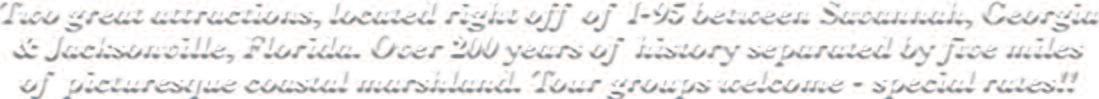 Two great attractions, located right off of I-95 between Savannah, Georgia
& Jacksonville, Florida. Over 200 years of history separated by five miles
of picturesque coastal marshland. Tour groups welcome - special rates!!